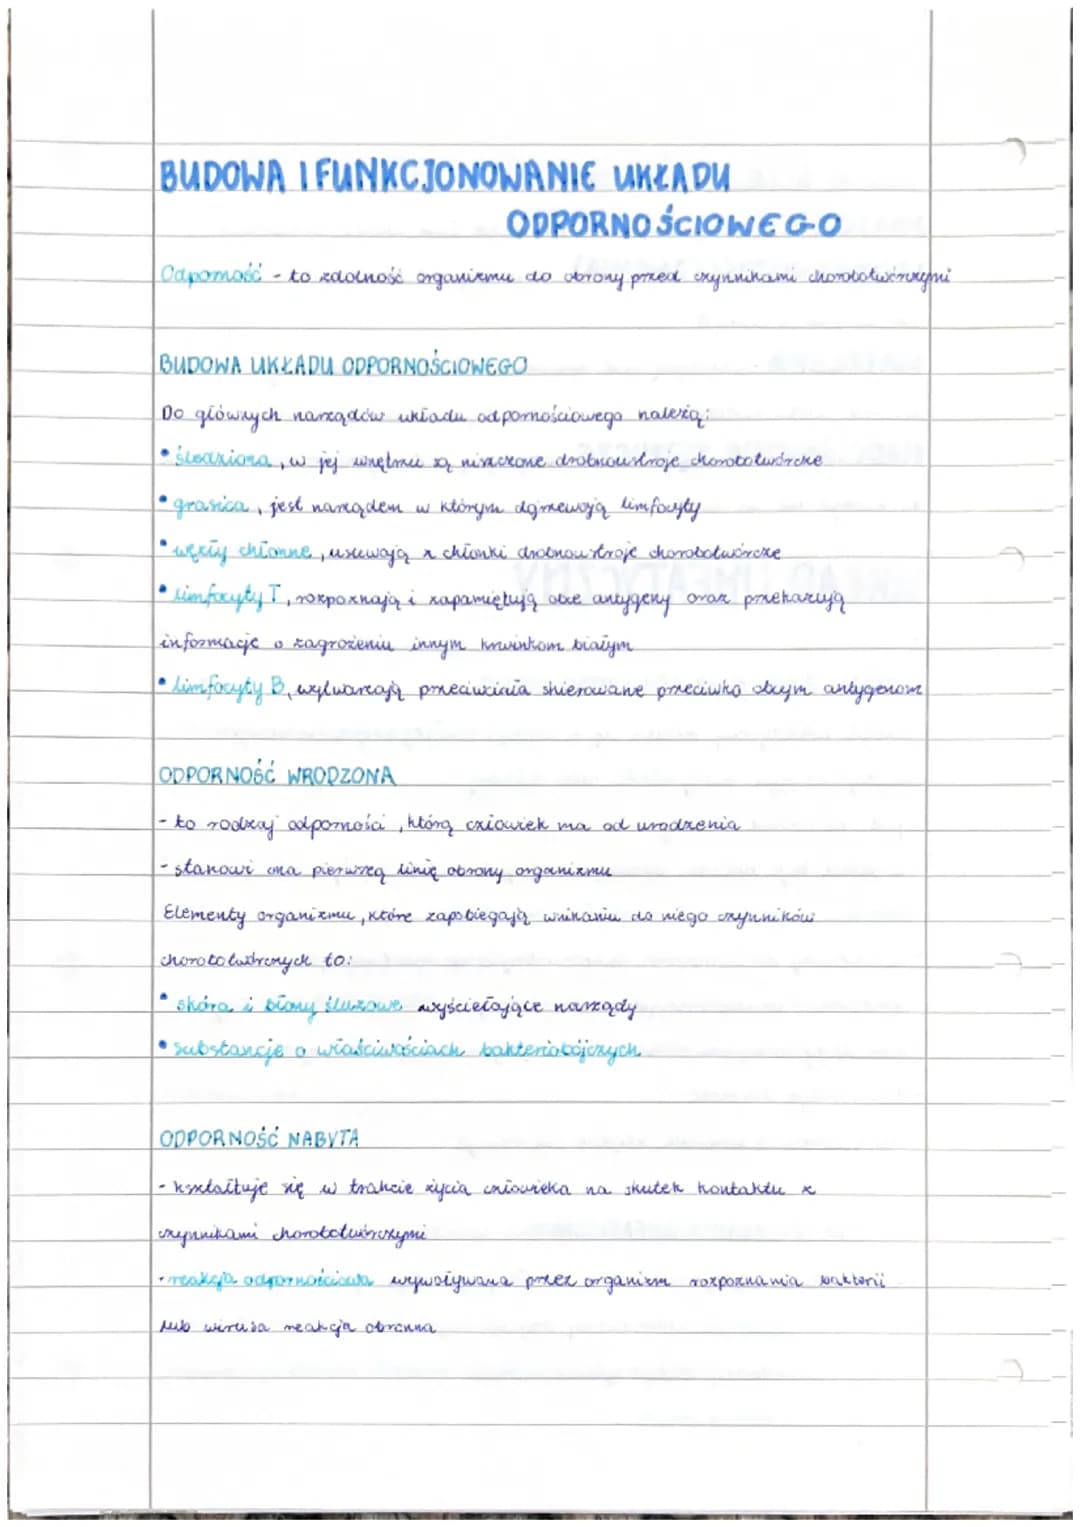 BUDOWA I FUNKCJONOWANIE UKŁADU
ODPORNOŚCIOWEGO
Odporność - to zdolność organizmu do obrony przed czynnikami chorobotwórczymi
BUDOWA UKŁADU ODPORNOŚCIOWEGO
Do głównych narządów układu odpornościowego należą:
• śledziona, w jej wnętrzu są niszczone drobnoustroje chorobotwórcze
• grasica, jest narządem w którym dojrzewają limfocyty
• węzły chłonne, usuwają z chłonki drobnoustroje chorobotwórcze
• limfocyty T, rozpoznają i zapamiętują obce antygeny oraz przekazują
informacje o zagrożeniu innym krwinkom białym
• limfocyty B, wytwarzają przeciwciała skierowane przeciwko obcym antygenom
ODPORNOŚĆ WRODZONA
- to rodzaj odporności, którą człowiek ma od urodzenia
- stanowi ona pierwszą linię obrony organizmu
Elementy organizmu, które zapobiegają wnikaniu do niego czynników
chorobotwórczych to:
• skóra i błony śluzowe wyściełające narządy
• substancje o właściwościach bakteriobójczych
ODPORNOŚĆ NABYTA
- kształtuje się w trakcie życia człowieka na skutek kontaktu z
czynnikami chorobotwórczymi
• reakcja odpornościowa wywoływana przez organizm rozpoznania bakterii
lub wirusa reakcja obronna